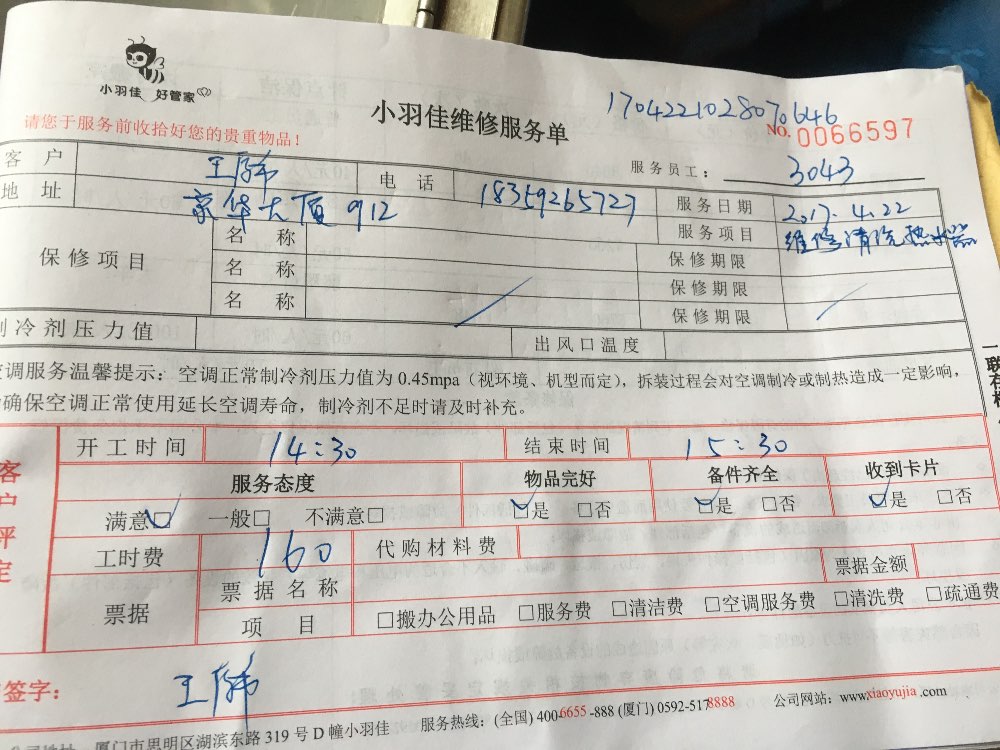 小羽佳 好管家
小羽佳维修服务单
1704221028070646
请您于服务前收拾好您的贵重物品！
NO. 0066597
服务员工： 3043
客 户 王 电 话 18359265727 服务日期 2017.4.22
地 址 京华大厦 912 服务项目 维修清洗热水器
保修项目 名 称 保修期限
名 称 保修期限
名 称 保修期限
制冷剂压力值 出风口温度
空调服务温馨提示：空调正常制冷剂压力值为 0.45mpa（视环境、机型而定），拆装过程会对空调制冷或制热造成一定影响，
确保空调正常使用延长空调寿命，制冷剂不足时请及时补充。
一联存根
客户评定
开工时间 14:30 结束时间 15:30
服务态度 物品完好 备件齐全 收到卡片
满意□ 一般□ 不满意□ □是 □否 □是 □否 □是 □否
工时费 160 代购材料费
票据 票据名称 票据金额
项 目 □搬办公用品 □服务费 □清洁费 □空调服务费 □清洗费 □疏通费
签字： 王
公司地址 厦门市思明区湖滨东路 319 号 D 幢小羽佳 服务热线：(全国) 400-6655-888 (厦门) 0592-5178888 公司网站：www.xiaoyujia.com